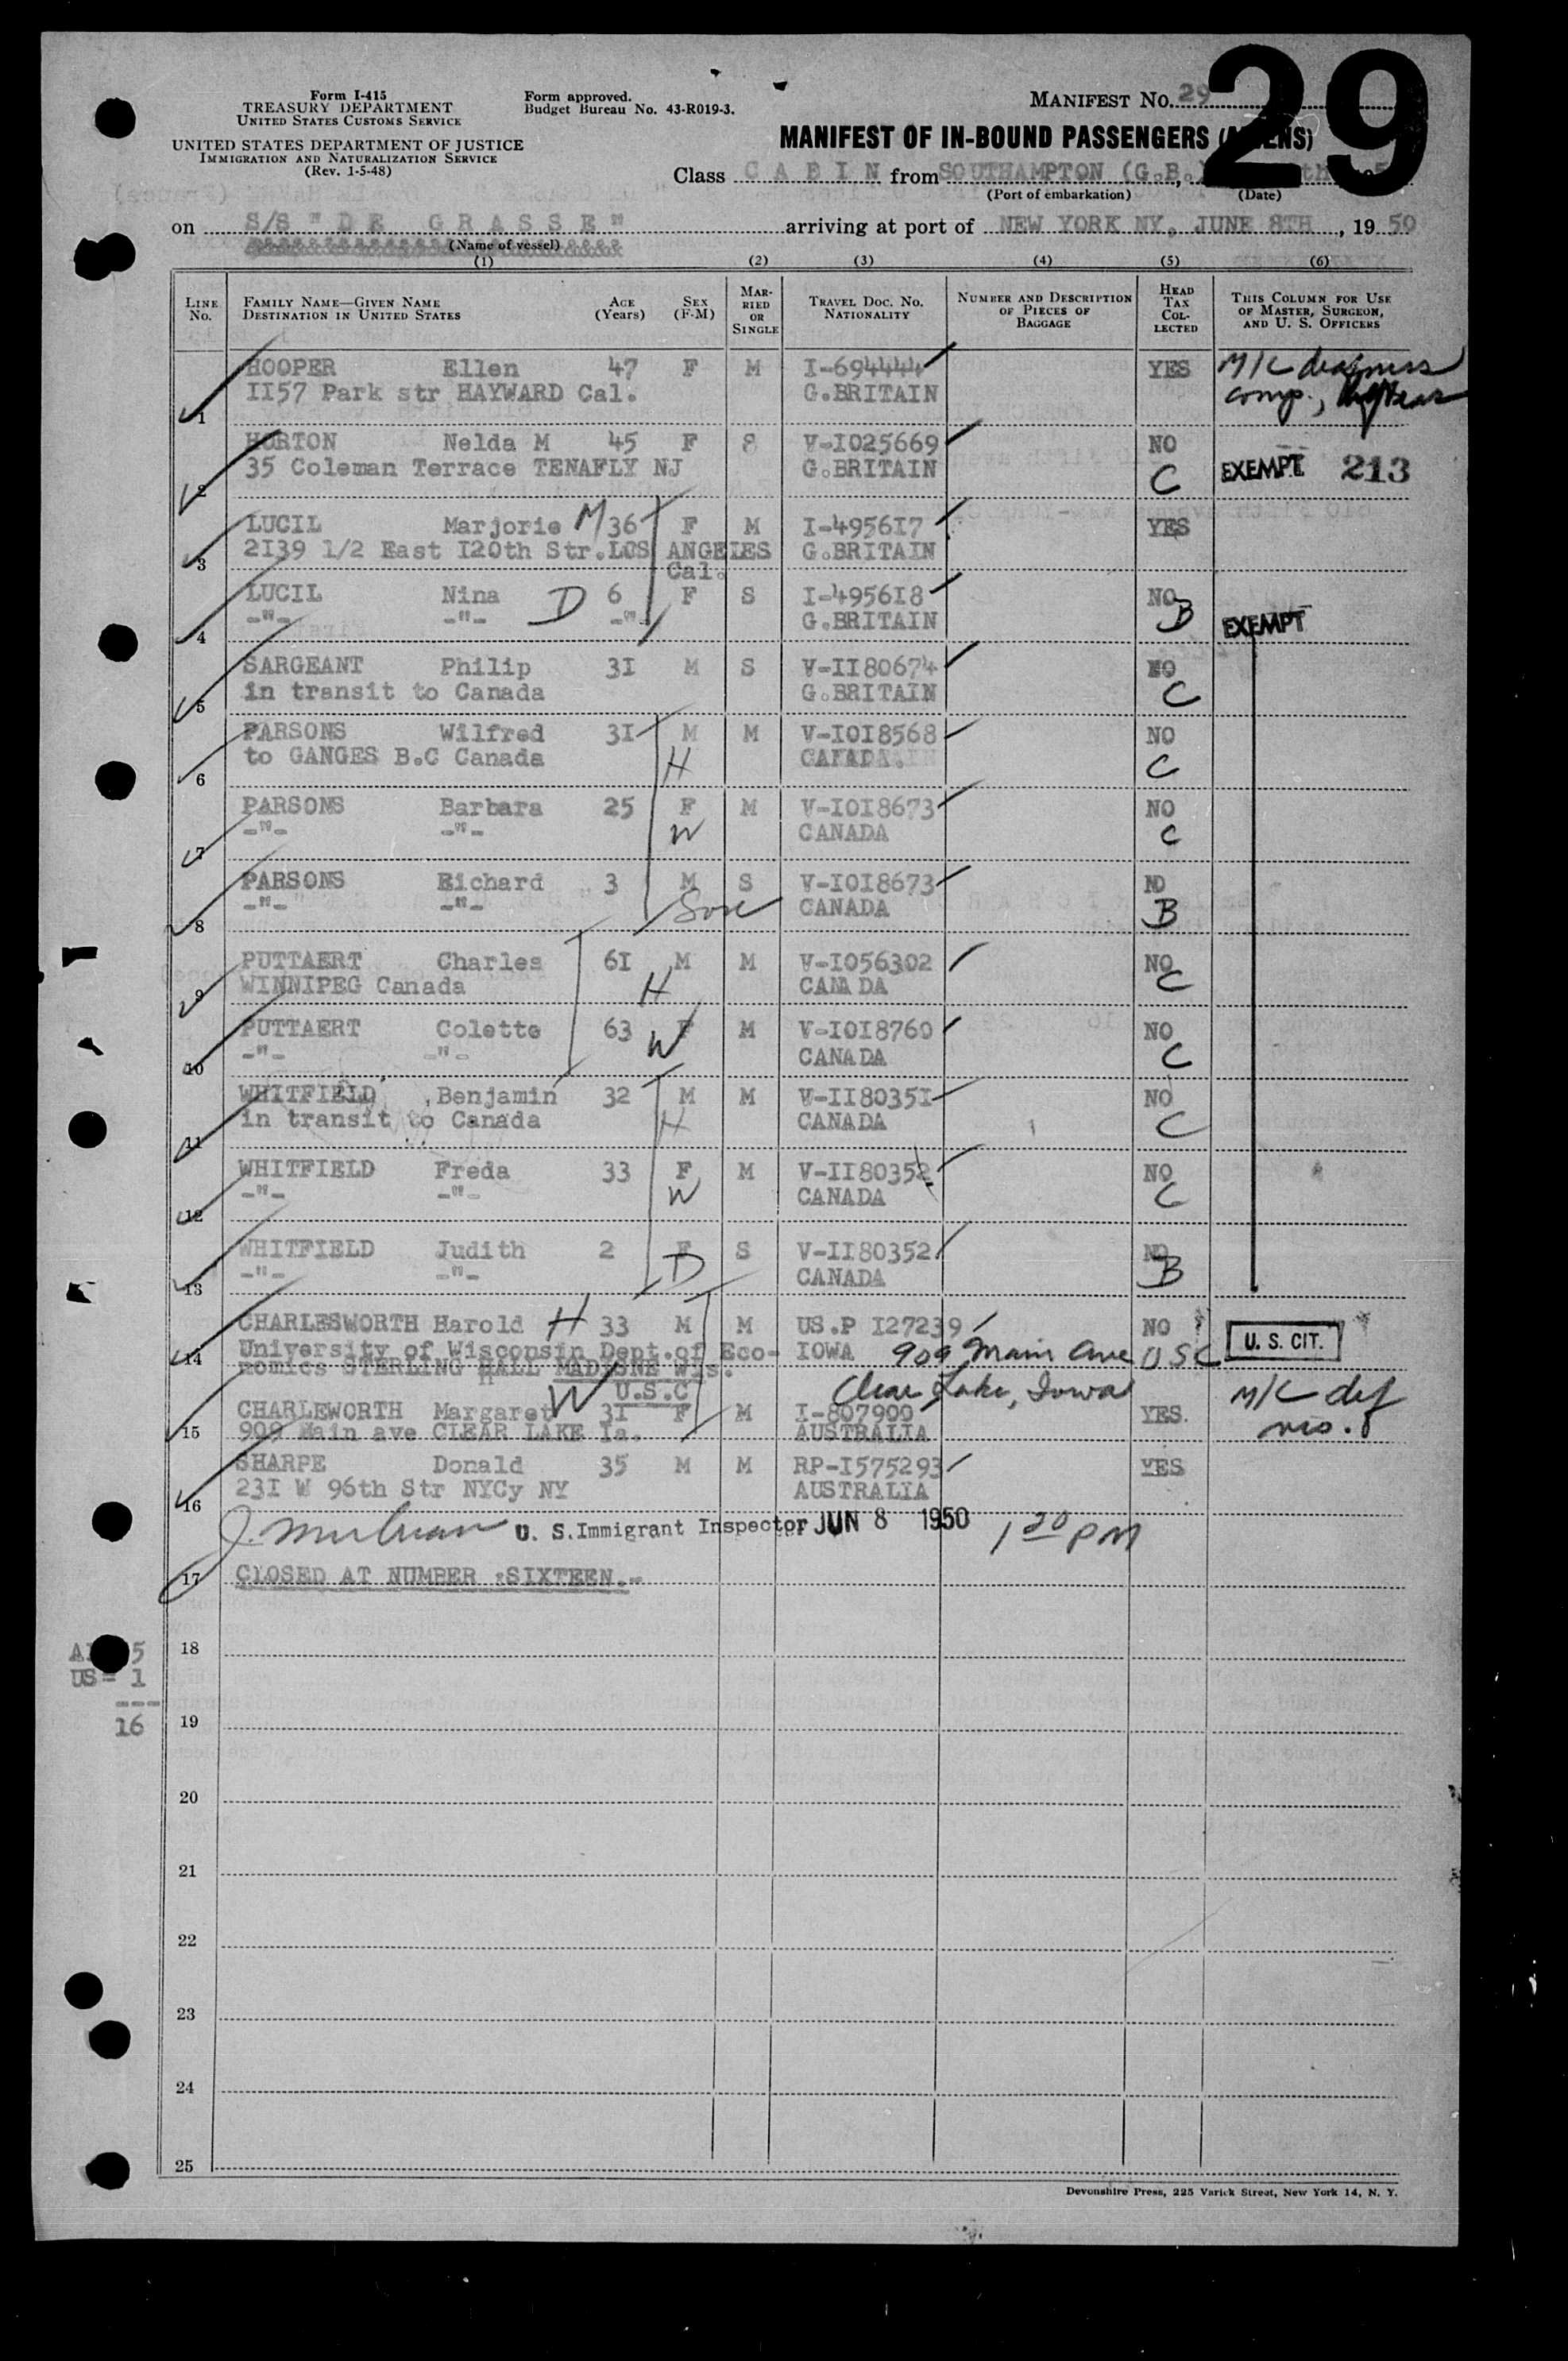 29
Form I-415
TREASURY DEPARTMENT
UNITED STATES CUSTOMS SERVICE
UNITED STATES DEPARTMENT OF JUSTICE
IMMIGRATION AND NATURALIZATION SERVICE
(Rev. 1-5-48)
Form approved.
Budget Bureau No. 43-R019-3.
MANIFEST NO. 29
MANIFEST OF IN-BOUND PASSENGERS
Class C A B I N from SOUTHAMPTON (G.B.), th
(Port of embarkation) (Date)
on S/S "DE GRASSE" arriving at port of NEW YORK NY, JUNE 8TH, 19 50
(Name of vessel)
(1) (2) (3) (4) (5) (6)
LINE No. FAMILY NAME—GIVEN NAME DESTINATION IN UNITED STATES AGE (Years) SEX (F-M) MARRIED OR SINGLE TRAVEL DOC. NO. NATIONALITY NUMBER AND DESCRIPTION OF PIECES OF BAGGAGE HEAD TAX COLLECTED THIS COLUMN FOR USE OF MASTER, SURGEON, AND U. S. OFFICERS
HOOPER Ellen 47 F M I-694444 YES M/C
1 II57 Park str HAYWARD Cal. G.BRITAIN comp.,
HORTON Nelda M 45 F S V-I025669 NO
2 35 Coleman Terrace TENAFLY NJ G.BRITAIN C EXEMPT 213
LUCIL Marjorie M 36 F M I-4956I7 YES
3 2I39 1/2 East I20th Str.LOS ANGELES G.BRITAIN
Cal.
LUCIL Nina D 6 F S I-4956I8 NO B
4 -"- -"- -"- G.BRITAIN EXEMPT
SARGEANT Philip 3I M S V-II80674 NO
5 in transit to Canada G.BRITAIN C
PARSONS Wilfred 3I M M V-I0I8568 NO
6 to GANGES B.C Canada H CANADA. C
PARSONS Barbara 25 F M V-I0I8673 NO
7 -"- -"- W CANADA C
PARSONS Richard 3 M S V-I0I8673 NO
8 -"- -"- Son CANADA B
PUTTAERT Charles 6I M M V-I056302 NO
9 WINNIPEG Canada H CANADA C
PUTTAERT Colette 63 F M V-I0I8760 NO
10 -"- -"- W CANADA C
WHITFIELD Benjamin 32 M M V-II8035I NO
11 in transit to Canada H CANADA C
WHITFIELD Freda 33 F M V-II80352 NO
12 -"- -"- W CANADA C
WHITFIELD Judith 2 F S V-II80352 NO
13 -"- -"- D CANADA B
CHARLESWORTH Harold H 33 M M US.P I27239 NO
14 University of Wisconsin Dept.of Eco- IOWA 909 Main Ave USC U. S. CIT.
nomics STERLING HALL MADISNE Wis. Clear Lake, Iowa
U.S.C
CHARLEWORTH Margaret W 3I F M I-807900 YES. M/C def
15 909 Main ave CLEAR LAKE Ia. AUSTRALIA vis.
SHARPE Donald 35 M M RP-I575293 YES
16 23I W 96th Str NYCy NY AUSTRALIA
U. S. Immigrant Inspector JUN 8 1950 1 30 PM
17 CLOSED AT NUMBER :SIXTEEN.-
18
5
US= 1
---
16
19
20
21
22
23
24
25
Devonshire Press, 225 Varick Street, New York 14, N. Y.